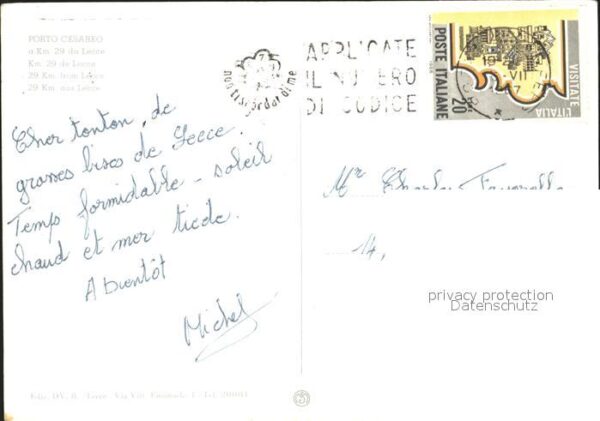 PORTO CESAREO
a Km. 29 da Lecce
Km. 29 de Lecce
29 Km. from Lecce
29 Km. aus Lecce
non ti scordar di me
APPLICATE
IL NUMERO
DI CODICE
19 VII
POSTE ITALIANE
20
VISITATE
L'ITALIA
Cher tonton, de
grosses bises de Lecce.
Temps formidable - soleil
chaud et mer tiède.
A bientôt
Michel
Mr Charles
14,
privacy protection
Datenschutz
Lecce - Via Vitt. Emanuele,